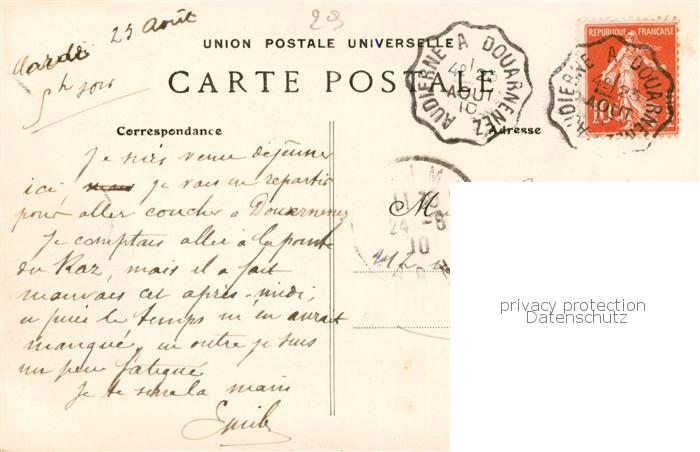 Mardi 23 Août
5h soir
23
UNION POSTALE UNIVERSELLE
CARTE POSTALE
AUDIERNE A DOUARNENEZ
23
AOUT
10
REPUBLIQUE FRANÇAISE
10
AUDIERNE A DOUARNENEZ
23
AOUT
Correspondance
Adresse
Je suis venu déjeuner
ici, je vais en repartir
pour aller coucher à Douarnenez
Je comptais aller à la pointe
du Raz, mais il a fait
mauvais cet après-midi,
et puis le temps m'en aurait
manqué, en outre je suis
un peu fatigué
Je te serre la main
Emile
M
24 -8
10
privacy protection
Datenschutz